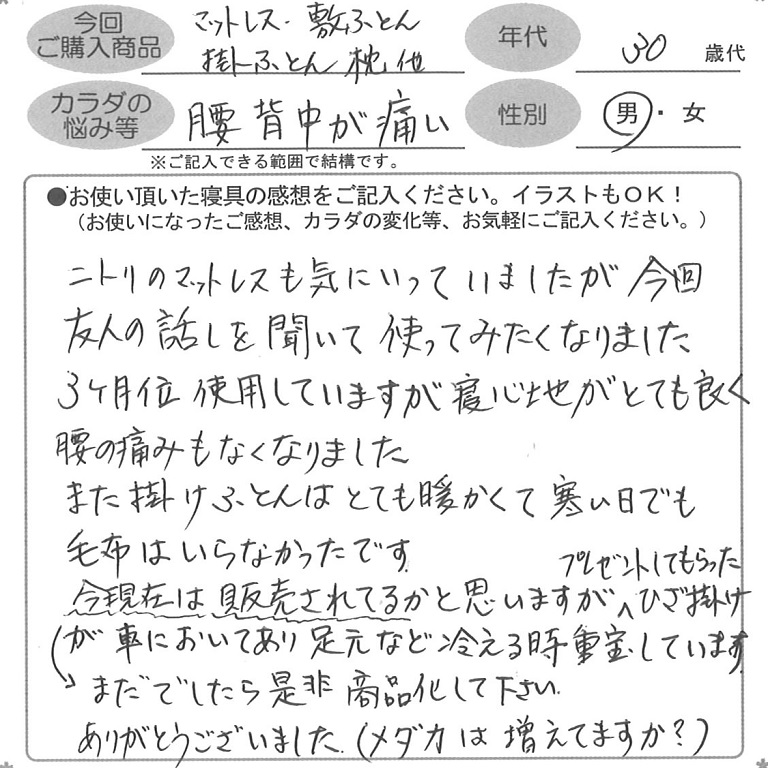 今回
ご購入商品
マットレス・敷ふとん
掛ふとん 枕 他
年代
30 歳代
カラダの
悩み等
腰 背中が痛い
性別
男・女
※ご記入できる範囲で結構です。
●お使い頂いた寝具の感想をご記入ください。イラストもOK！
（お使いになったご感想、カラダの変化等、お気軽にご記入ください。）
ニトリのマットレスも気にいっていましたが 今回
友人の話しを聞いて使ってみたくなりました
3ヶ月位 使用していますが寝心地がとても良く
腰の痛みもなくなりました
また掛けふとんはとても暖かくて寒い日でも
毛布はいらなかったです
プレゼントしてもらった
今現在は販売されてるかと思いますがひざ掛け
が車においてあり足元など冷える時重宝しています
まだでしたら是非 商品化して下さい
ありがとうございました。(メダカは増えてますか？)